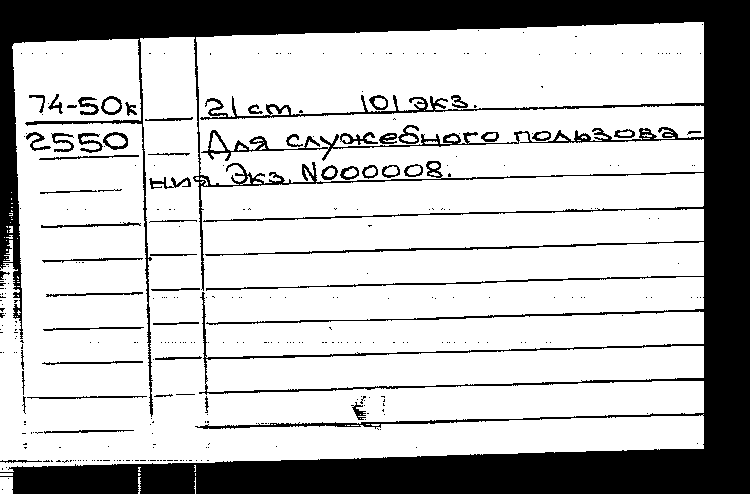 74-50к 21 ст. 101 экз.
2550 Для служебного пользова-
ния. Экз. N000008.